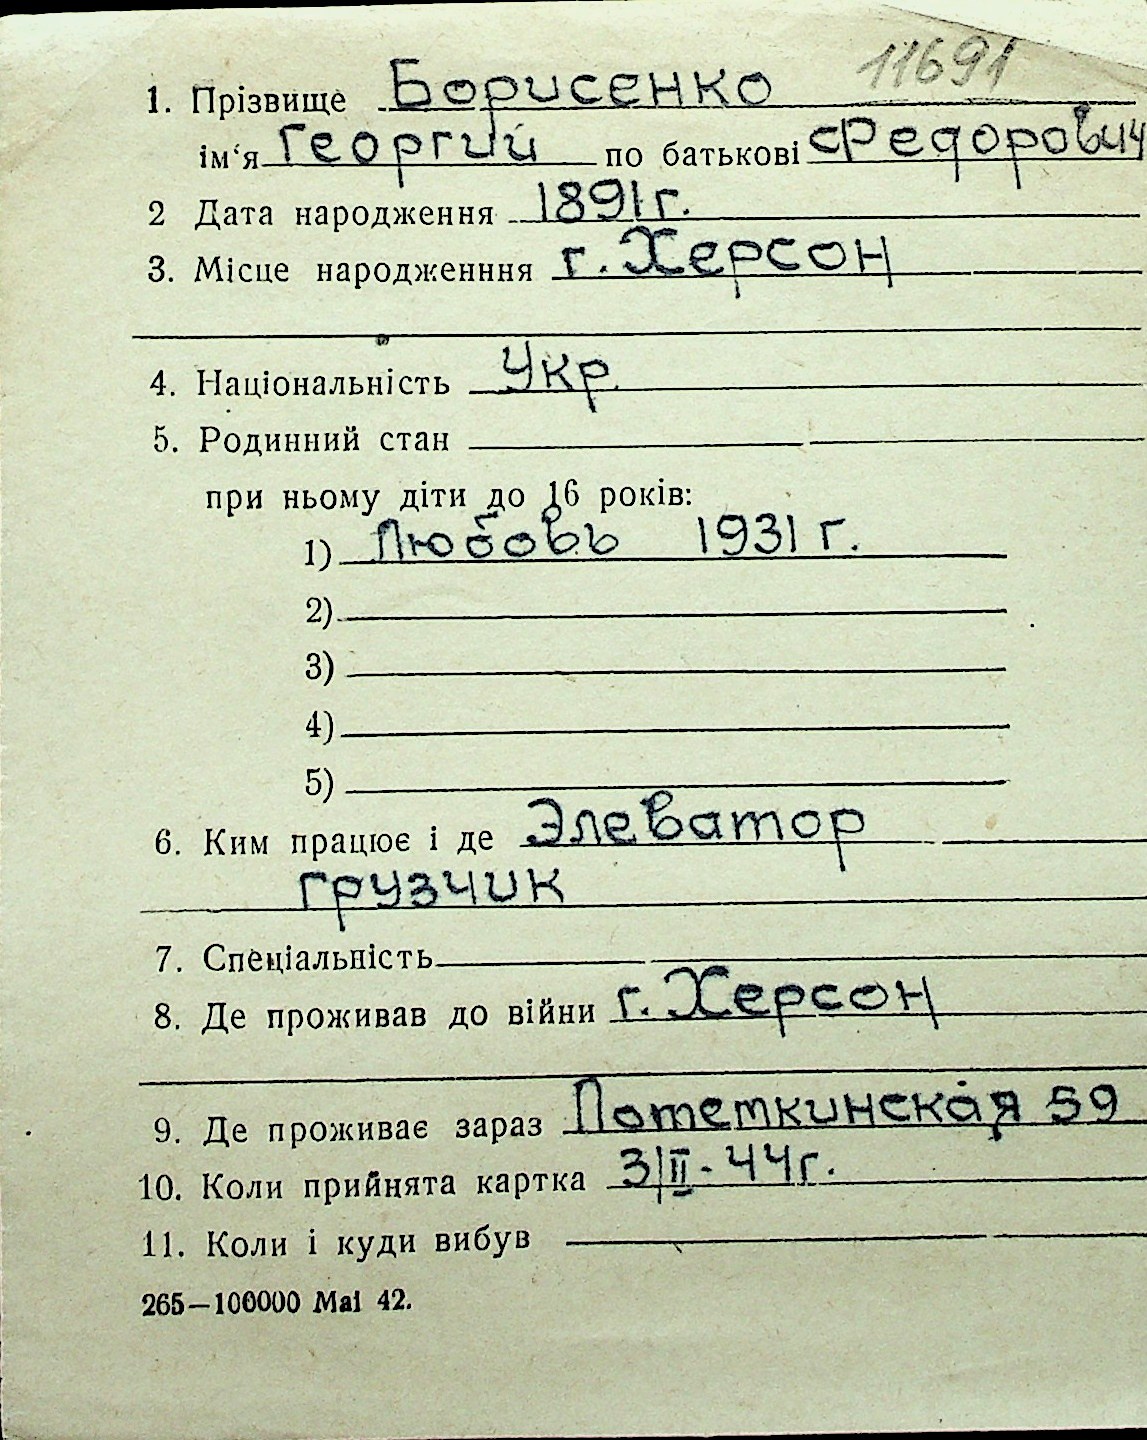 11691
1. Прізвище Борисенко
ім'я Георгий по батькові Федорович
2 Дата народження 1891 г.
3. Місце народженння г. Херсон
4. Національність Укр
5. Родинний стан
при ньому діти до 16 років:
1) Любовь 1931 г.
2)
3)
4)
5)
6. Ким працює і де Элеватор
грузчик
7. Спеціальність
8. Де проживав до війни г. Херсон
9. Де проживає зараз Потемкинская 59
10. Коли прийнята картка 3/II-44г.
11. Коли і куди вибув
265—100000 Mai 42.